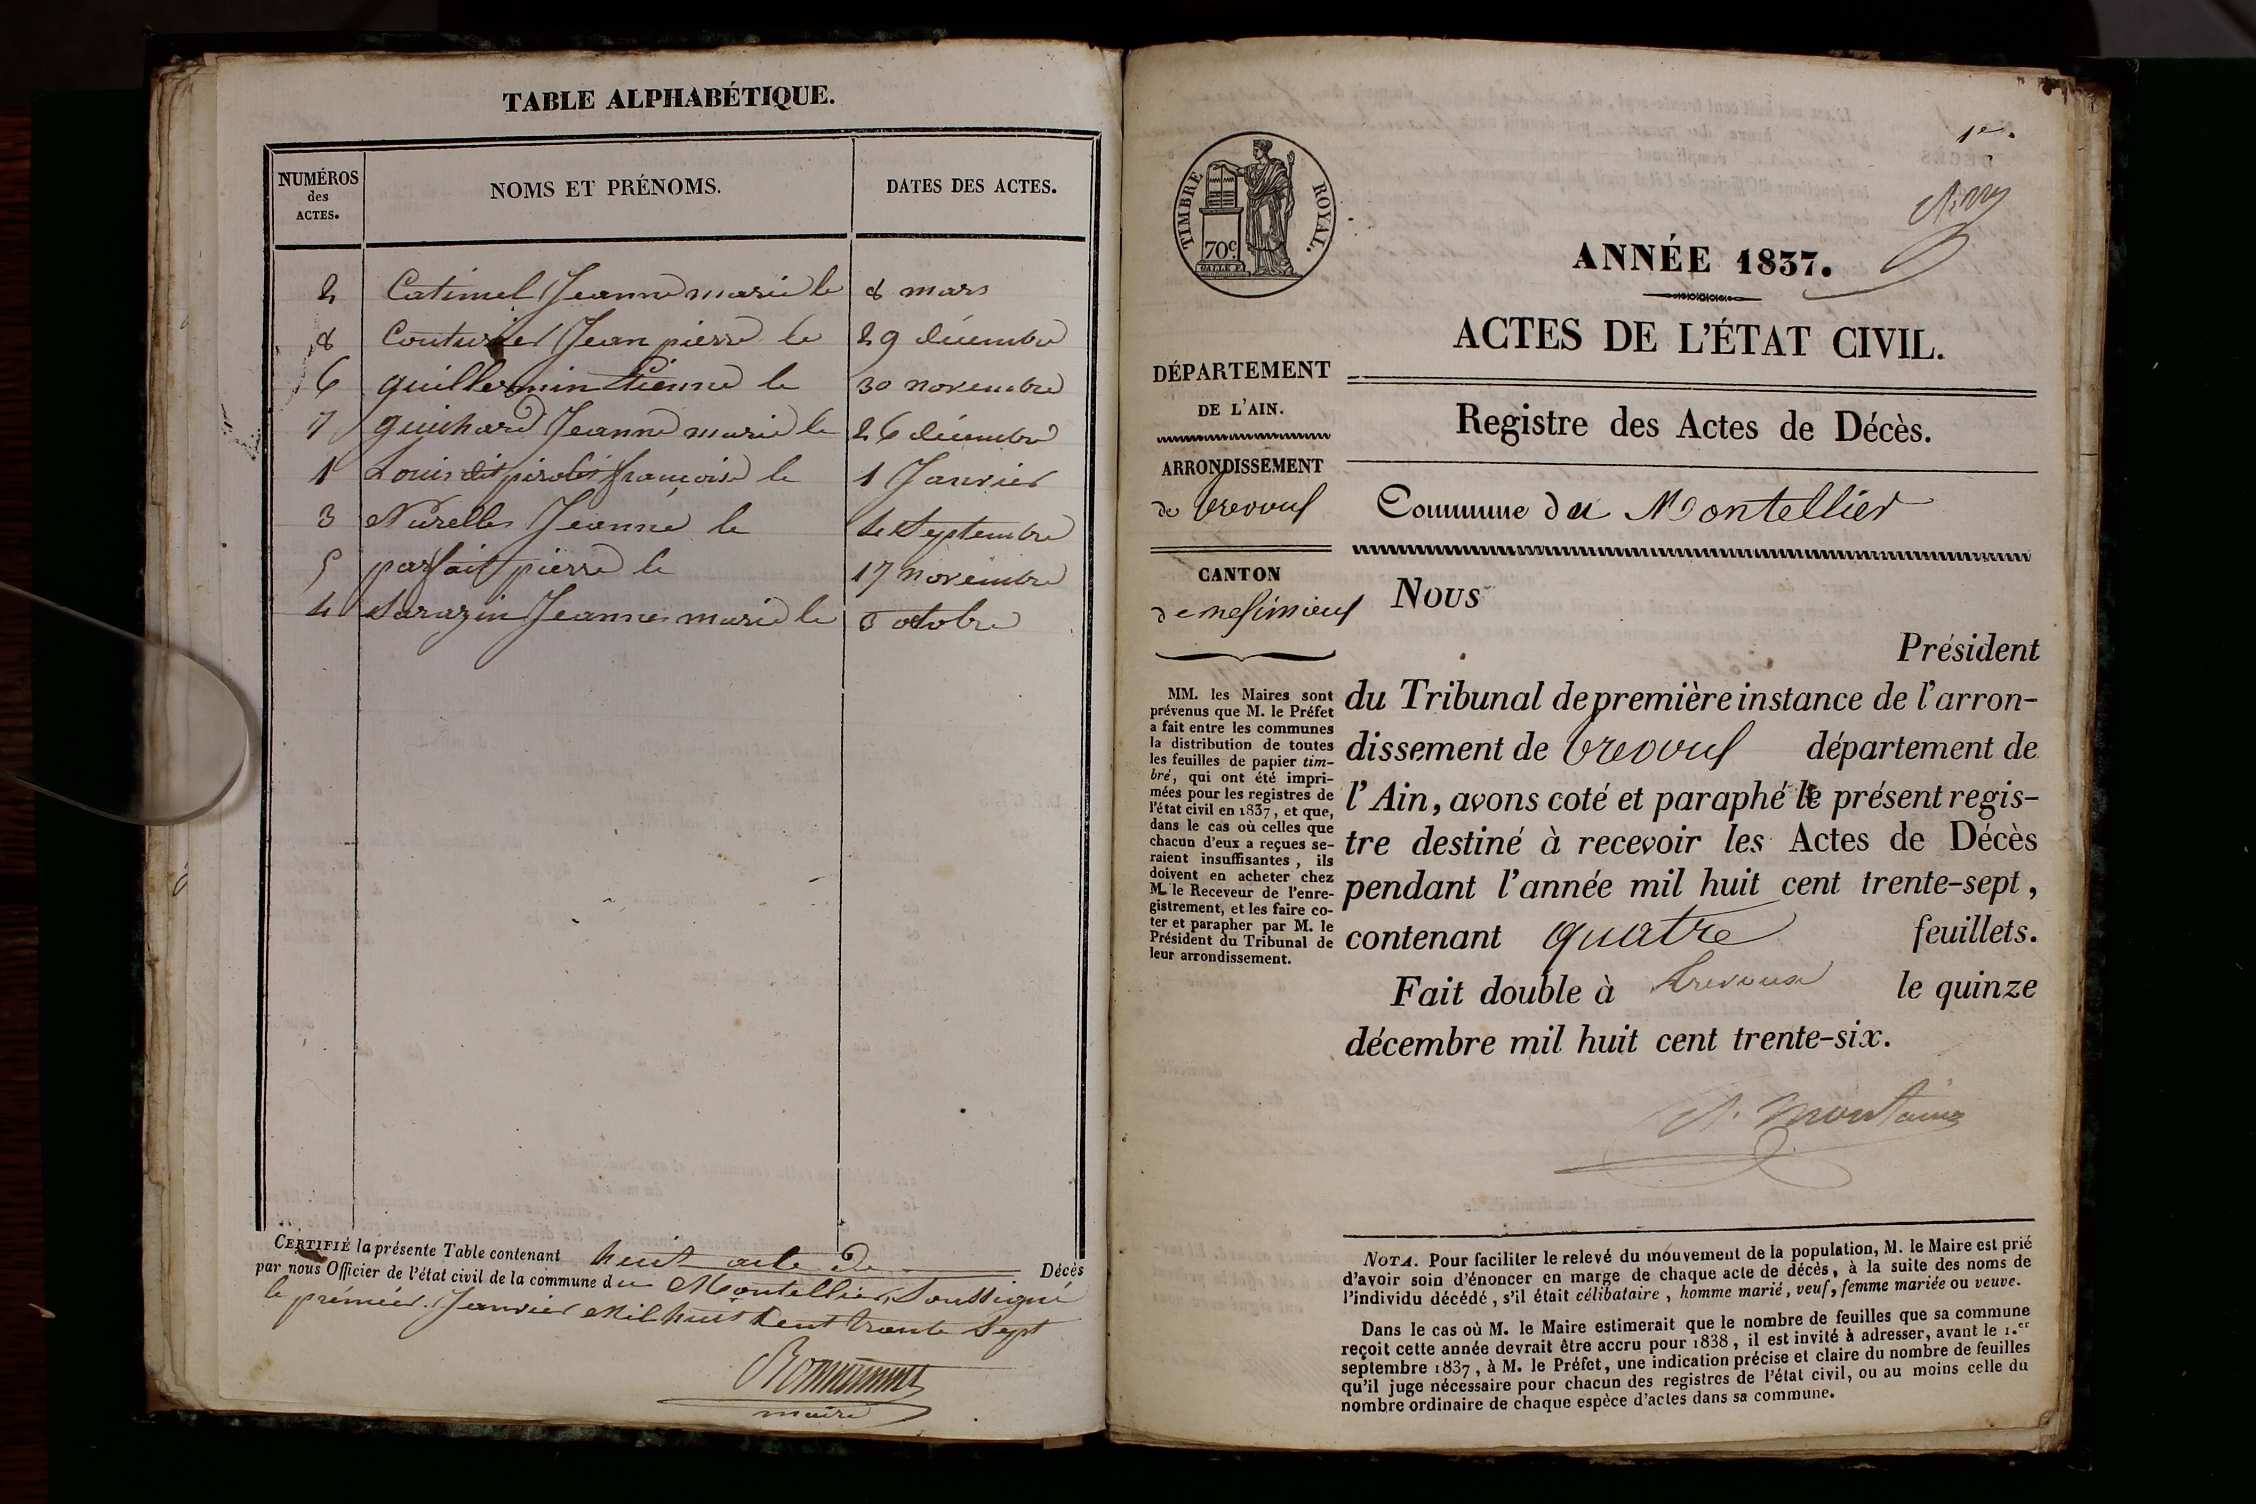 TABLE ALPHABÉTIQUE.
NUMÉROS des ACTES. NOMS ET PRÉNOMS. DATES DES ACTES.
2 Catimel Jeanne marie le 8 mars
8 Couturier Jean pierre le 29 décembre
6 guillermin le 30 novembre
7 guichard Jeanne marie le 26 décembre
1 Louis dit françoise le 1 Janvier
3 Jeanne le Septembre
5 parfait pierre le 17 novembre
4 Sarazin Jeanne marie le 3 octobre
CERTIFIÉ la présente Table contenant huit acte de Décès
par nous Officier de l'état civil de la commune du Montellier, Soussigné
le prémier Janvier Mil huit Cent trente Sept
maire
1er.
TIMBRE ROYAL.
70c.
ANNÉE 1837.
ACTES DE L'ÉTAT CIVIL.
DÉPARTEMENT
DE L'AIN.
ARRONDISSEMENT
de trevoux
CANTON
de meximieux
MM. les Maires sont
prévenus que M. le Préfet
a fait entre les communes
la distribution de toutes
les feuilles de papier tim-
bré, qui ont été impri-
mées pour les registres de
l'état civil en 1837, et que,
dans le cas où celles que
chacun d'eux a reçues se-
raient insuffisantes, ils
doivent en acheter chez
M. le Receveur de l'enre-
gistrement, et les faire co-
ter et parapher par M. le
Président du Tribunal de
leur arrondissement.
Registre des Actes de Décès.
Commune du Montellier
Nous
Président
du Tribunal de première instance de l'arron-
dissement de trevoux département de
l'Ain, avons coté et paraphé le présent regis-
tre destiné à recevoir les Actes de Décès
pendant l'année mil huit cent trente-sept,
contenant quatre feuillets.
Fait double à trevoux le quinze
décembre mil huit cent trente-six.
NOTA. Pour faciliter le relevé du mouvement de la population, M. le Maire est prié
d'avoir soin d'énoncer en marge de chaque acte de décès, à la suite des noms de
l'individu décédé, s'il était célibataire, homme marié, veuf, femme mariée ou veuve.
Dans le cas où M. le Maire estimerait que le nombre de feuilles que sa commune
reçoit cette année devrait être accru pour 1838, il est invité à adresser, avant le 1.er
septembre 1837, à M. le Préfet, une indication précise et claire du nombre de feuilles
qu'il juge nécessaire pour chacun des registres de l'état civil, ou au moins celle du
nombre ordinaire de chaque espèce d'actes dans sa commune.